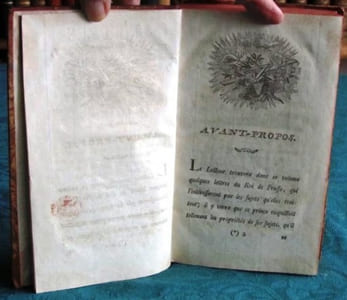 AVANT-PROPOS.
Le Lecteur trouvera dans ce volume
quelques lettres du Roi de Prusse, qui
l'intéresseront par les sujets qu'elles trai-
tent; il y verra que ce prince respectoit
tellement les propriétés de ses sujets, qu'il
(*) 2